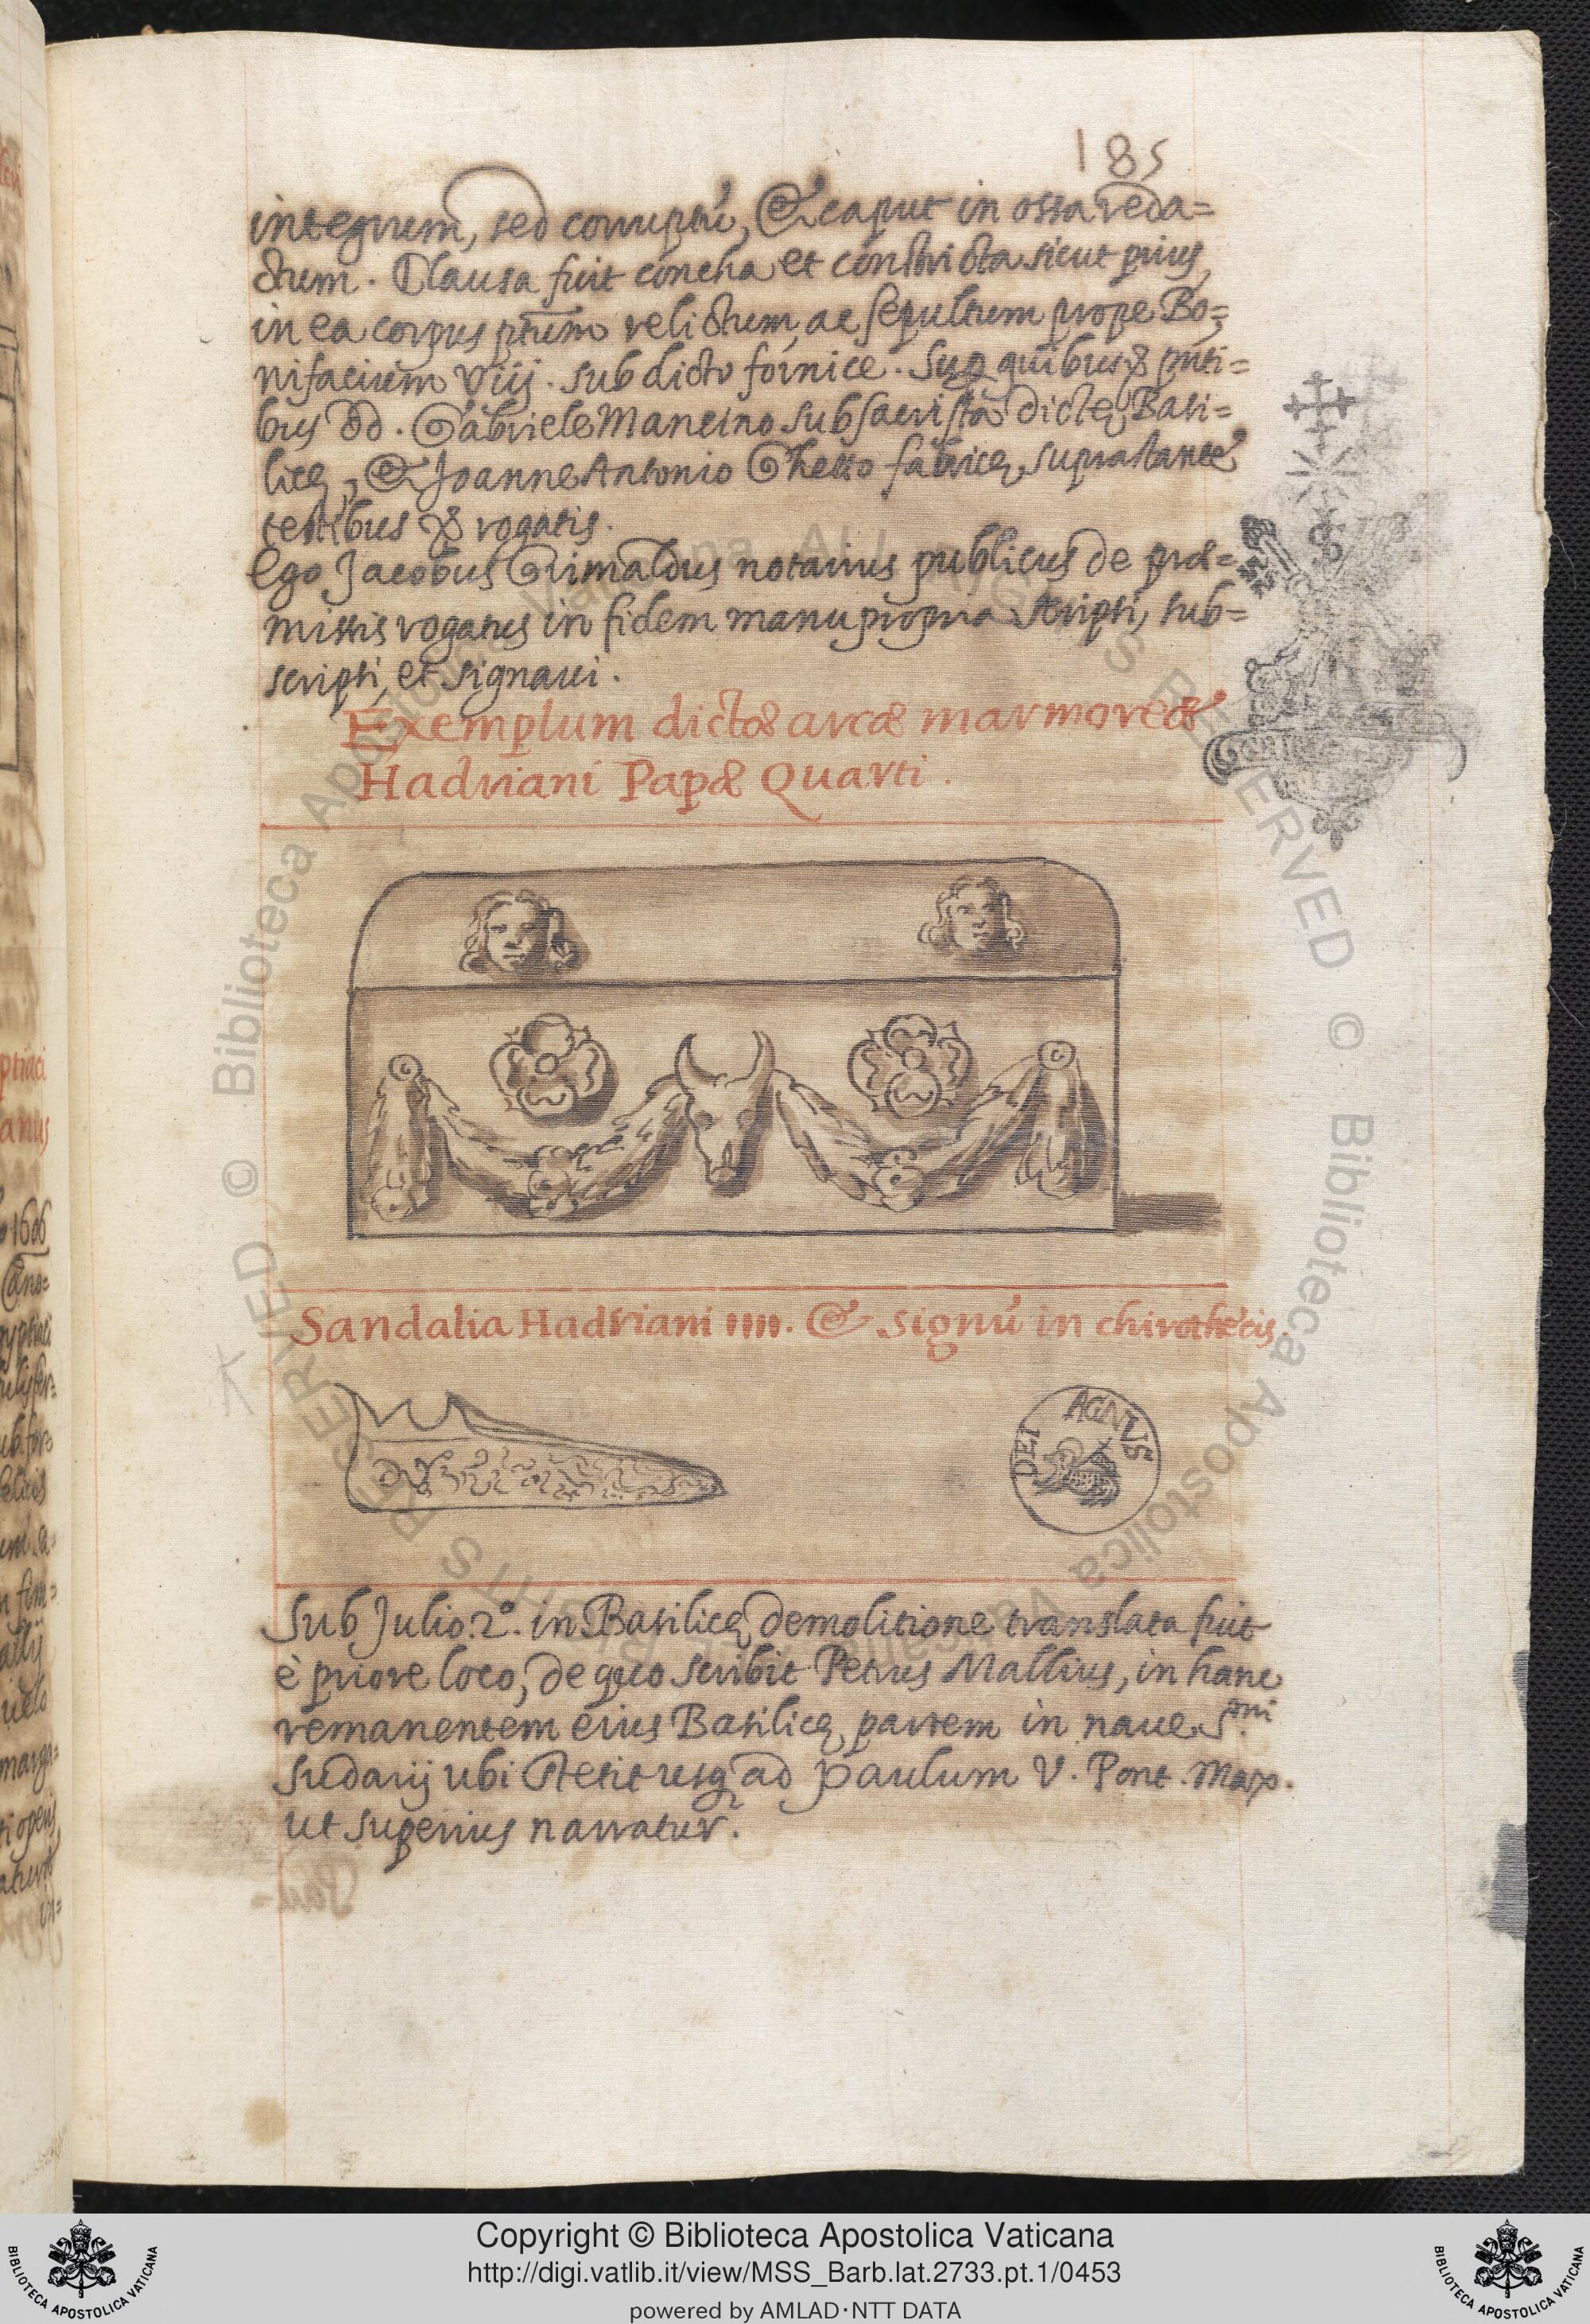 185
integrum, sed corruptũ, & caput in ossa reda=
ctum. Clausa fuit concha et constricta sicut prius,
in ea corpus ptum relictum, ac sepultum prope Bo=
nifacium Viij. sub dicto fornice. Sup quibus &
bus DD. Gabriele Mancino subsacrista dictę Basi=
licę, & Joanne Antonio Ghetto fabricę suprastante
testibus & rogatis.
Ego Jacobus Grimaldus notarius publicus de præ=
missis rogatus in fidem manu propria scripsi, sub=
scripsi, et signaui.
Exemplum dictæ arcæ marmoreæ
Hadriani Papæ Quarti.
Sandalia Hadriani IIII. & signũ in chirothecis.
AGNUS DEI
Sub Julio 2º. in Basilicę demolitione translata fuit
è priore loco, de quo scribit Petrus Mallius, in hanc
remanentem eius Basilicę partem in naue S.mi
Sudarij ubi stetit usq ad Paulum V. Pont. Max.
ut superius narratur.
© Biblioteca Apostolica Vaticana ALL RIGHTS RESERVED
Copyright © Biblioteca Apostolica Vaticana
http://digi.vatlib.it/view/MSS_Barb.lat.2733.pt.1/0453
powered by AMLAD·NTT DATA
BIBLIOTECA APOSTOLICA VATICANA
BIBLIOTECA APOSTOLICA VATICANA